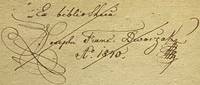 Ex bibliotheca
Josephi Franc. Dworzak
A° 1840.